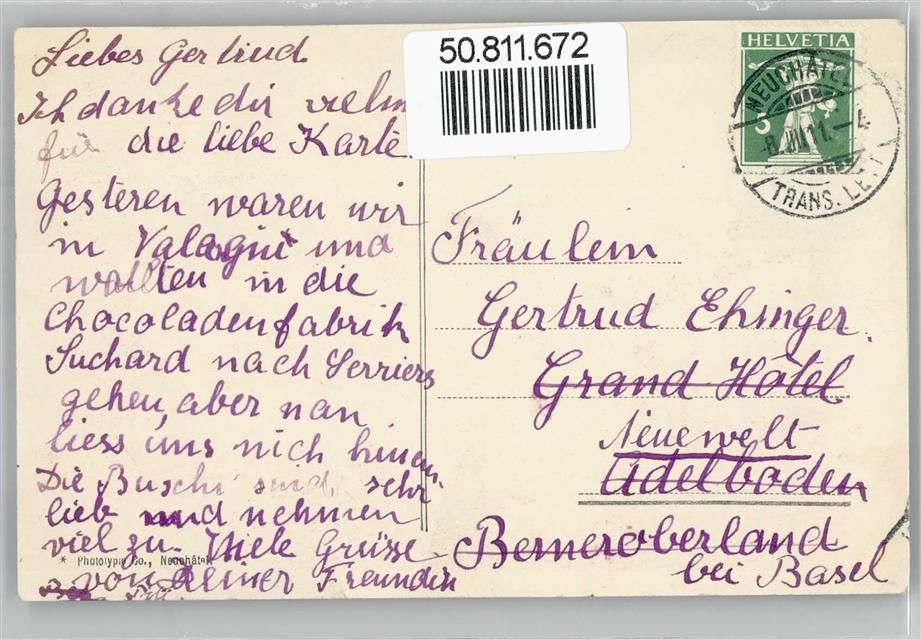 Liebes Gertrud.
Ich danke dir vielm
für die liebe Karte.
Gesteren waren wir
in Valangin und
wollten in die
Chocoladenfabrik
Suchard nach Serriers
gehen, aber nan
liess uns nich hinein.
Die Buschi sind sehr
lieb und nehmen
viel zu. Viele Grüsse
von deiner Freundin
* Phototypie Co., Neuchâtel
50.811.672
HELVETIA
5
NEUCHÂTEL
8.III.11.–4
TRANS. LET.
Fräulein
Gertrud Ehinger.
Grand Hôtel
Neuewelt
Adelboden
Berneroberland
bei Basel